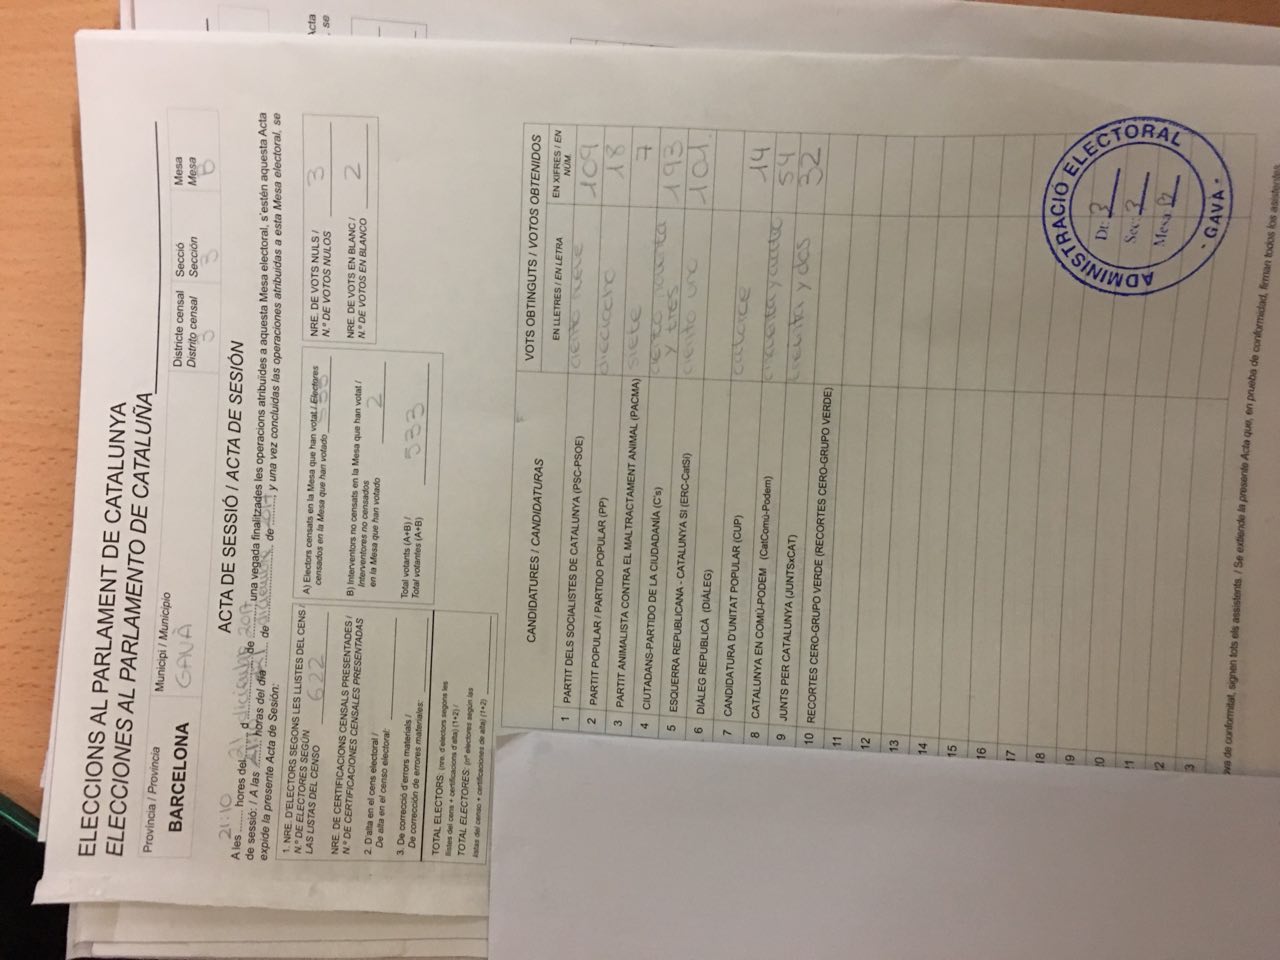 ELECCIONS AL PARLAMENT DE CATALUNYA
ELECCIONES AL PARLAMENTO DE CATALUÑA
Província / Provincia
BARCELONA
Municipi / Municipio
GAVÀ
Districte censal
Distrito censal
3
Secció
Sección
3
Mesa
Mesa
B
ACTA DE SESSIÓ / ACTA DE SESIÓN
A les 21:10 hores del 21 diciembre 2017 una vegada finalitzades les operacions atribuïdes a aquesta Mesa electoral, s'estén aquesta Acta
de sessió: / A las horas del día de de y una vez concluidas las operaciones atribuidas a esta Mesa electoral, se
expide la presente Acta de Sesión:
1. NRE. D'ELECTORS SEGONS LES LLISTES DEL CENS /
N.º DE ELECTORES SEGÚN
LAS LISTAS DEL CENSO 622
NRE. DE CERTIFICACIONS CENSALS PRESENTADES /
N.º DE CERTIFICACIONES CENSALES PRESENTADAS
2. D'alta en el cens electoral /
De alta en el censo electoral:
3. De correcció d'errors materials /
De corrección de errores materiales:
TOTAL ELECTORS: (nre. d'electors segons les
llistes del cens + certificacions d'alta) (1+2) /
TOTAL ELECTORES: (nº electores según las
listas del censo + certificaciones de alta) (1+2)
A) Electors censats en la Mesa que han votat / Electores
censados en la Mesa que han votado
B) Interventors no censats en la Mesa que han votat /
Interventores no censados
en la Mesa que han votado 2
Total votants (A+B) /
Total votantes (A+B) 533
NRE. DE VOTS NULS /
N.º DE VOTOS NULOS 3
NRE. DE VOTS EN BLANC /
N.º DE VOTOS EN BLANCO 2
CANDIDATURES / CANDIDATURAS
VOTS OBTINGUTS / VOTOS OBTENIDOS
EN LLETRES / EN LETRA
EN XIFRES / EN NÚM.
1 PARTIT DELS SOCIALISTES DE CATALUNYA (PSC-PSOE) ciento nueve 109
2 PARTIT POPULAR / PARTIDO POPULAR (PP) dieciocho 18
3 PARTIT ANIMALISTA CONTRA EL MALTRACTAMENT ANIMAL (PACMA) siete 7
4 CIUTADANS-PARTIDO DE LA CIUDADANÍA (C's) ciento noventa y tres 193
5 ESQUERRA REPUBLICANA - CATALUNYA SÍ (ERC-CatSí) ciento uno 101.
6 DIÀLEG REPUBLICÀ (DIÀLEG)
7 CANDIDATURA D'UNITAT POPULAR (CUP) catorce 14
8 CATALUNYA EN COMÚ-PODEM (CatComú-Podem) cincuenta y cuatro 54
9 JUNTS PER CATALUNYA (JUNTSxCAT) treinta y dos 32
10 RECORTES CERO-GRUPO VERDE (RECORTES CERO-GRUPO VERDE)
11
12
13
14
15
16
17
18
19
20
21
22
23
ADMINISTRACIO ELECTORAL
· GAVA ·
Dt: 3
Sec: 3
Mesa B
de conformitat, signen tots els assistents. / Se extiende la presente Acta que, en prueba de conformidad, firman todos los asistentes